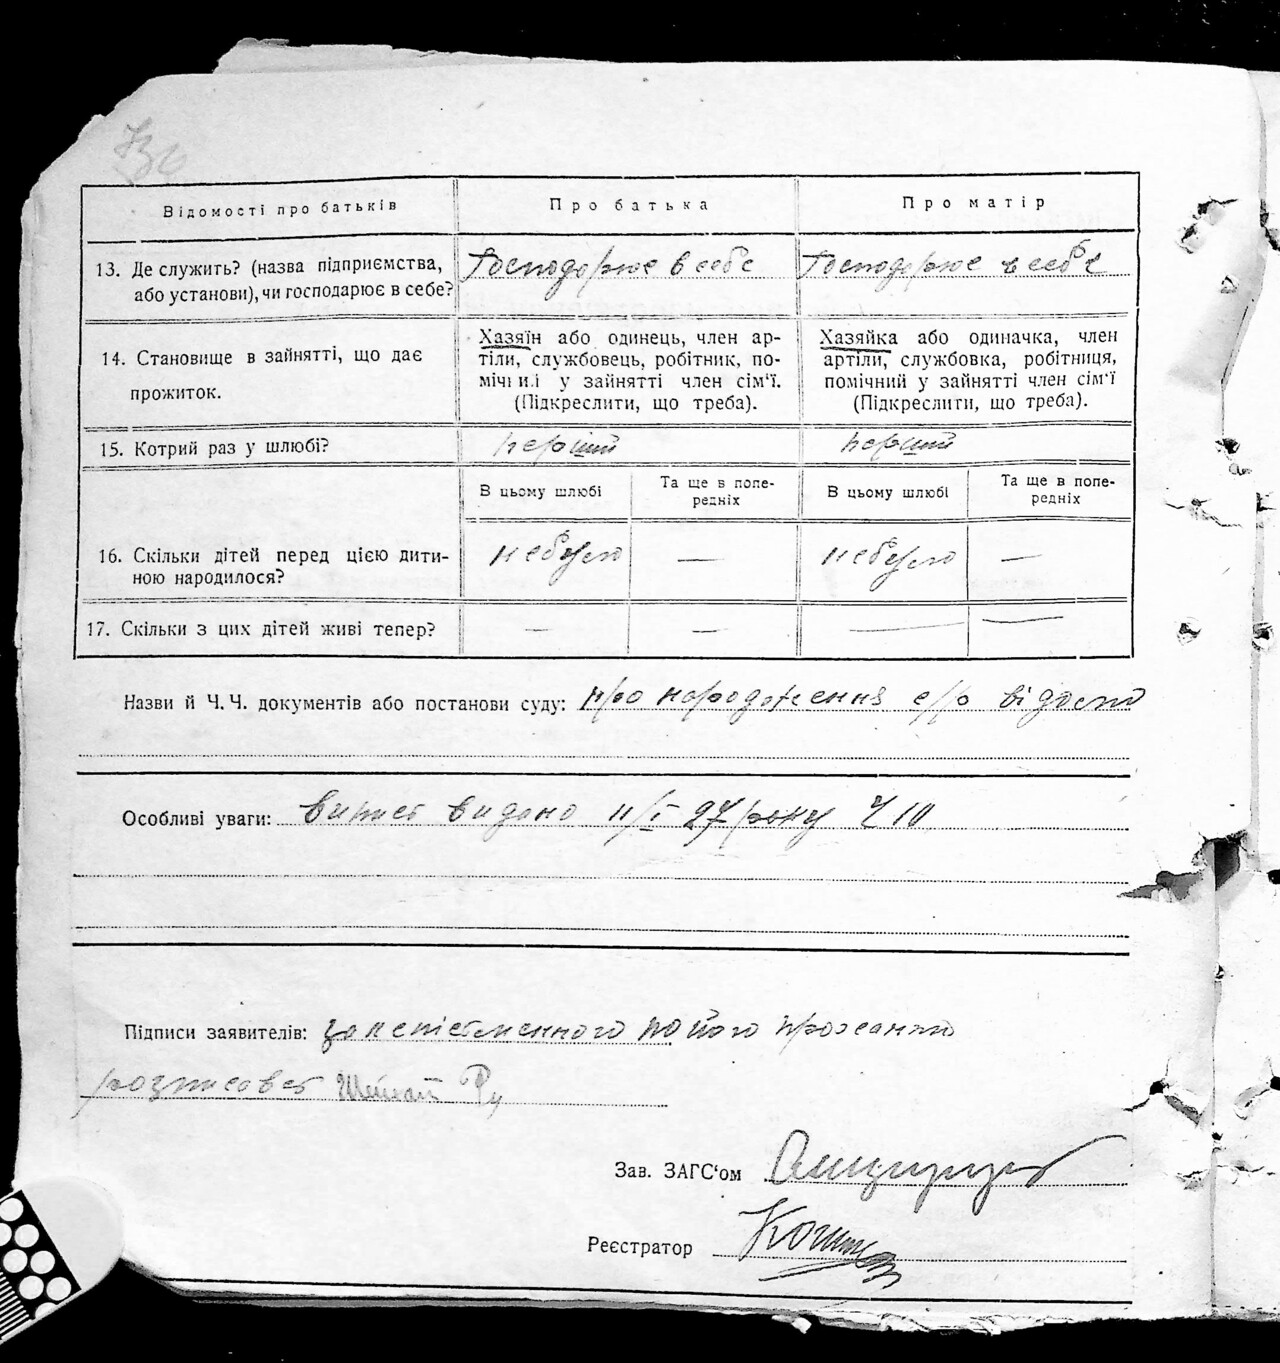 Відомості про батьків
Про батька
Про матір
13. Де служить? (назва підприємства, або установи), чи господарює в себе?
Господарює в себе
Господарює в себе
14. Становище в зайнятті, що дає прожиток.
Хазяїн або одинець, член ар-
тіли, службовець, робітник, по-
мічний у зайнятті член сім'ї.
(Підкреслити, що треба).
Хазяйка або одиначка, член
артіли, службовка, робітниця,
помічний у зайнятті член сім'ї
(Підкреслити, що треба).
15. Котрий раз у шлюбі?
перший
перший
В цьому шлюбі
Та ще в попе-
редніх
В цьому шлюбі
Та ще в попе-
редніх
16. Скільки дітей перед цією дити-
ною народилося?
небуло
—
небуло
—
17. Скільки з цих дітей живі тепер?
—
—
—
—
Назви й Ч. Ч. документів або постанови суду: про народження с/р відомо
Особливі уваги: випис видано 11/I 27 року Ч 10
Підписи заявителів: за неписьменного по його проханню
розписовсь
Зав. ЗАГС'ом
Реєстратор